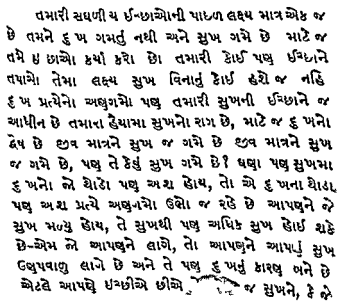 તમારી સઘળી ય ઈચ્છાઓની પાછળ લક્ષ્ય માત્ર એક જ
છે તમને દુ ખ ગમતું નથી અને સુખ ગમે છે માટે જ
તમે ઇ છાઓ કર્યા કરો છો તમારી કોઈ પણ ઈચ્છાને
તપાસો તેમા લક્ષ્ય સુખ વિનાનું કોઈ હશે જ નહિ
દુ ખ પ્રત્યેનો અણગમો પણ તમારી સુખની ઈચ્છાને જ
આધીન છે તમારા હૈયામા સુખનો રાગ છે, માટે જ દુ ખનો
દ્વેષ છે જીવ માત્રને સુખ જ ગમે છે જીવ માત્રને સુખ
જ ગમે છે, પણ તે કેવું સુખ ગમે છે? ઘણા પણ સુખમા
દુ ખનો જો થોડો પણ અશ હોય, તો એ દુ ખના થોડા
પણ અશ પ્રત્યે અણગમો ઉભો જ રહે છે આપણને જે
સુખ મળ્યુ હોય, તે સુખથી પણ અધિક સુખ હોઈ શકે
છે-એમ જો આપણને લાગે, તો આપણને આપણું સુખ
ઉણપવાળુ લાગે છે અને તે પણ દુ ખનું કારણ બને છે
એટલે આપણે ઈચ્છીએ છીએ જ સુખને, કે જે